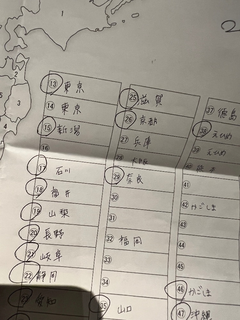 ⑬ 東京
⑭ 東京
⑮ 新潟
⑯
⑰ 石川
⑱ 福井
⑲ 山梨
⑳ 長野
㉑ 岐阜
㉒ 静岡
㉓ 愛知
㉕ 滋賀
㉖ 京都
㉗ 兵庫
㉘ 大阪
㉙ 奈良
㉚
㉛
㉜ 福岡
㉝
㉟ 山口
㊲ 徳島
㊳ えひめ
㊶
㊷ かごしま
㊸
㊹
㊺
㊻ かごしま
㊼ 沖縄
3